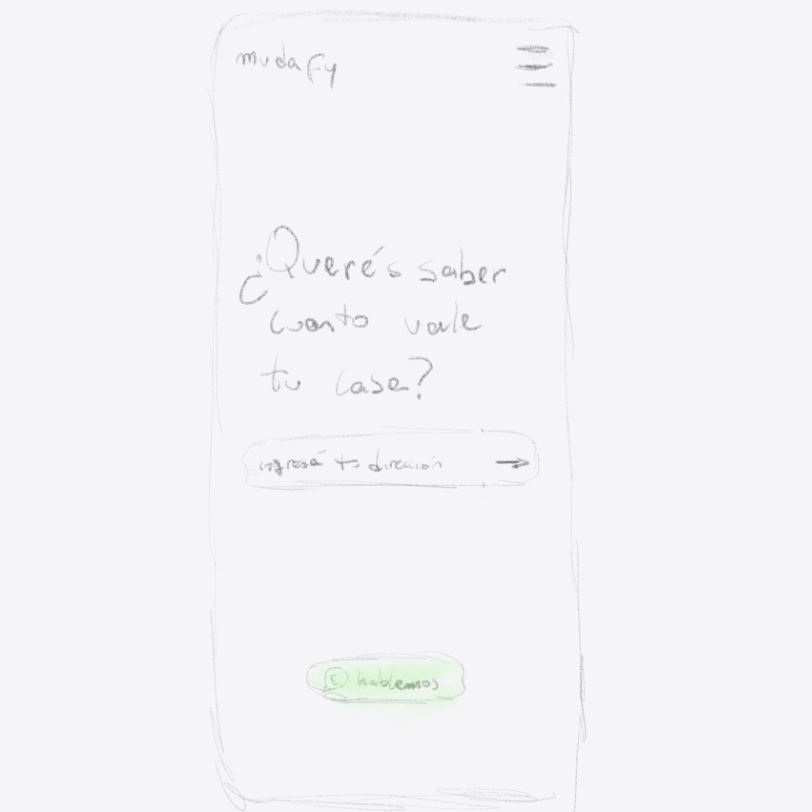 mudafy
¿Querés saber
cuanto vale
tu casa?
ingresá tu dirección
hablemos